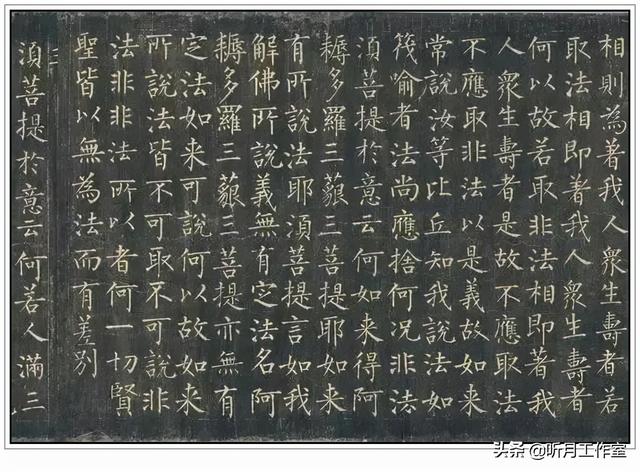 相則為著我人衆生壽者若
取法相即著我人衆生壽者
何以故若取非法相即著我
人衆生壽者是故不應取法
不應取非法以是義故如来
常說汝等比丘知我說法如
筏喻者法尚應捨何況非法
湏菩提於意云何如来得阿
耨多羅三藐三菩提耶如来
有所說法耶湏菩提言如我
解佛所說義無有定法名阿
耨多羅三藐三菩提亦無有
定法如来可說何以故如来
所說法皆不可取不可說非
法非非法所以者何一切賢
聖皆以無為法而有差別
湏菩提於意云何若人滿三
头条 @听月工作室